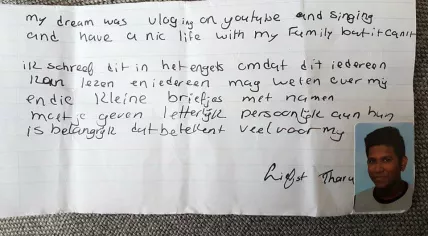 my dream was vloging on youtube and singing
and have a nic life with my Family but it cant
ik schreef dit in het engels omdat dit iedereen
kan lezen en iedereen mag weten over mij
en die kleine briefjes met namen
moet je geven letterlijk persoonlijk aan hun
is belangrijk dat betekent veel voor mij
liefst Tharu